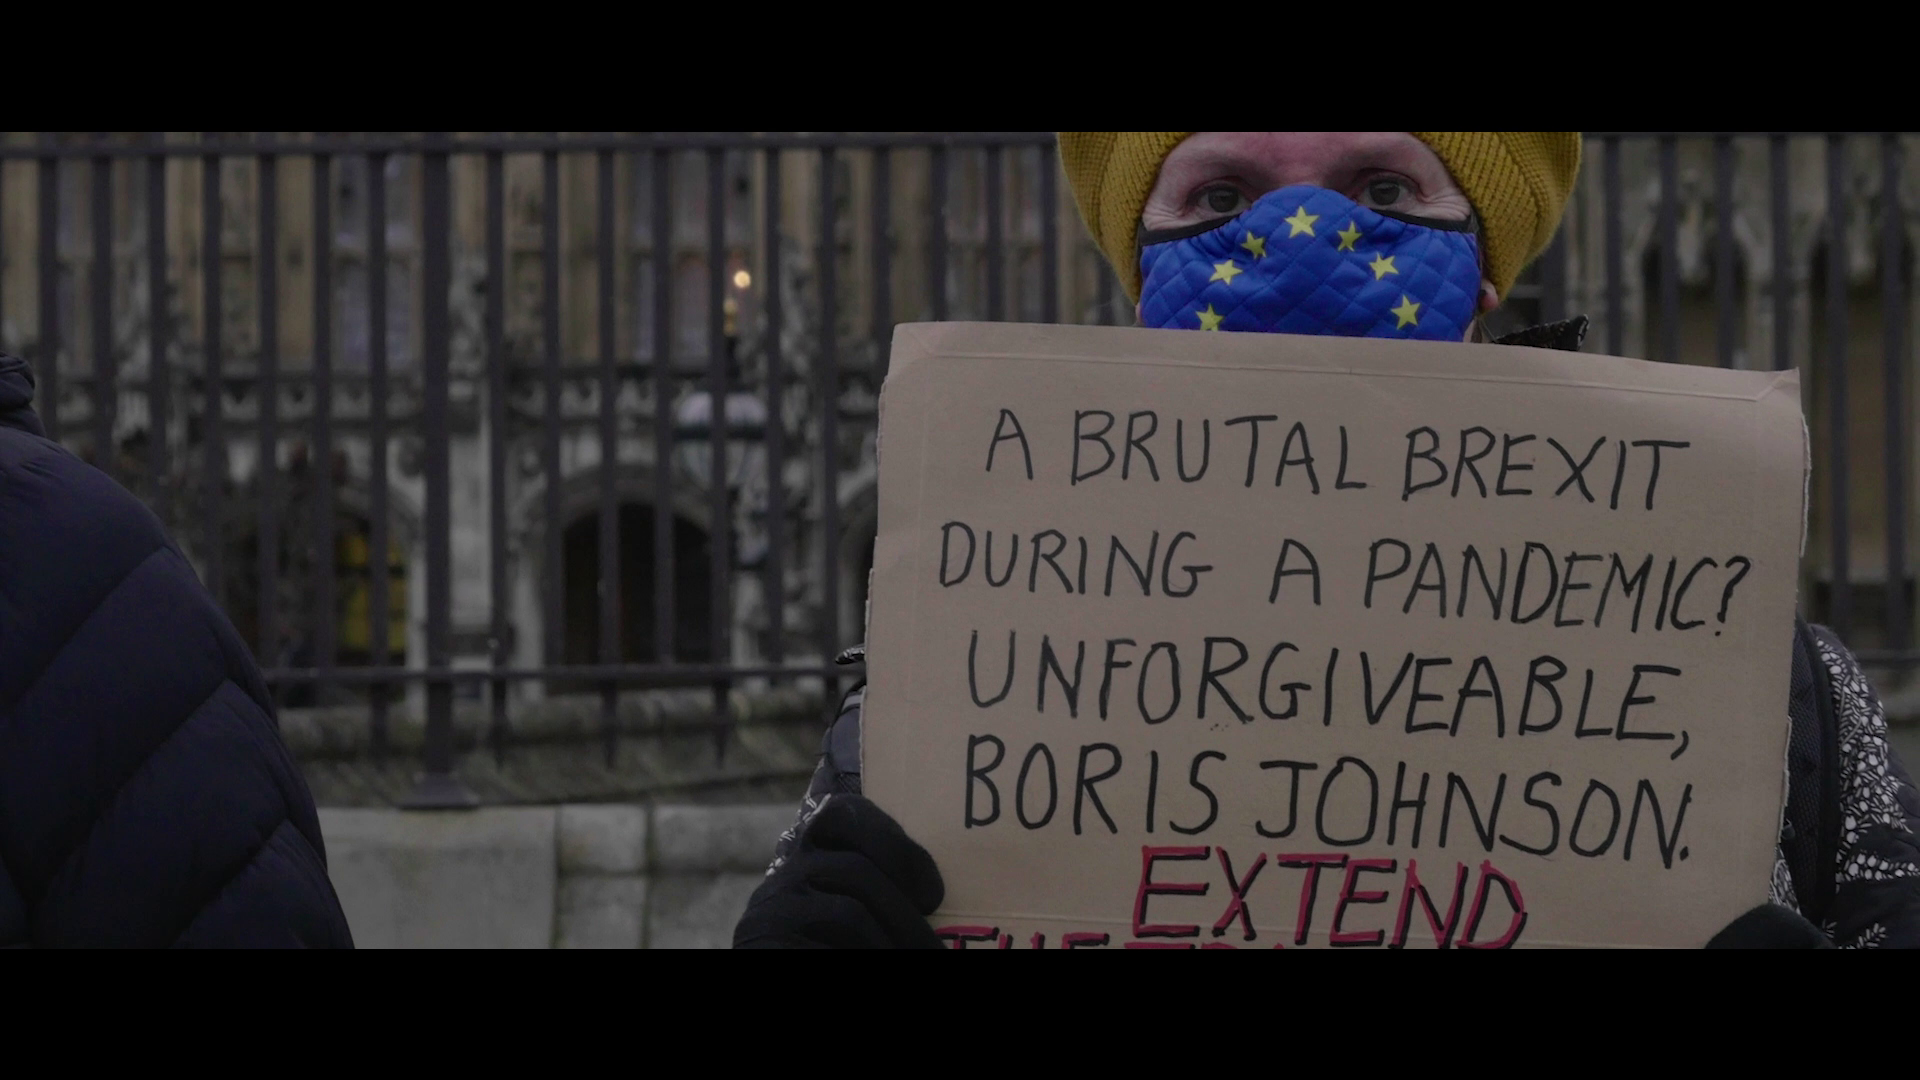 A BRUTAL BREXIT
DURING A PANDEMIC?
UNFORGIVEABLE,
BORIS JOHNSON.
EXTEND
THE